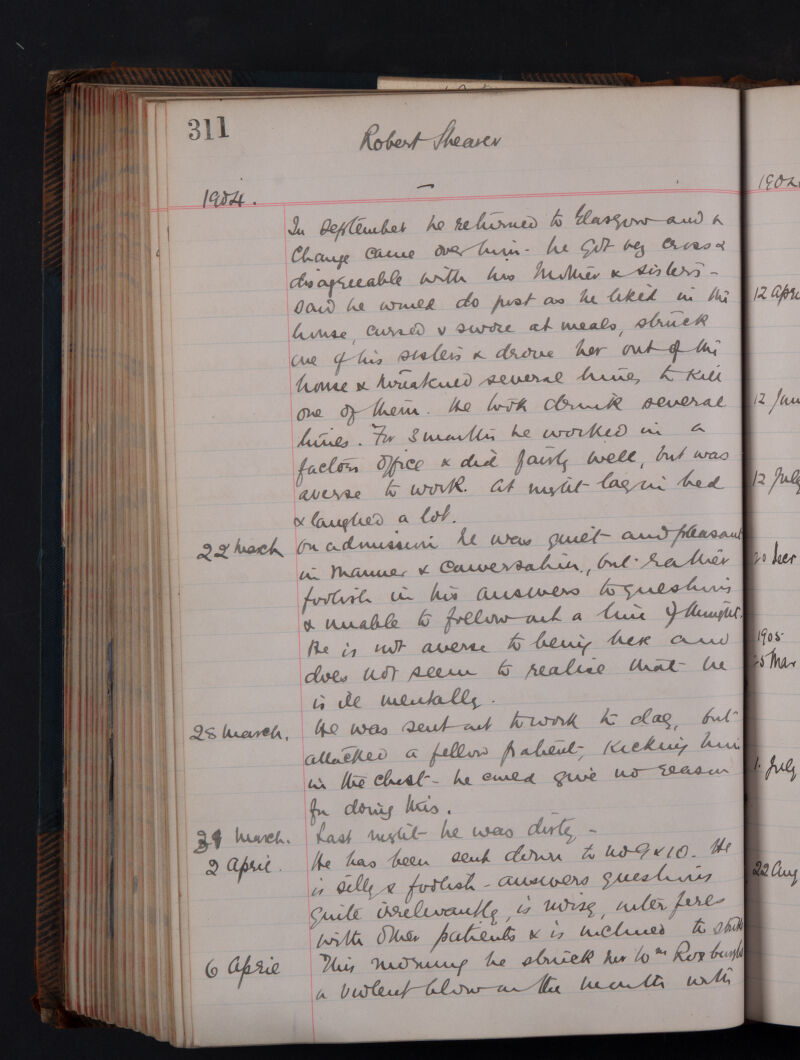 311
Robert Shearer
1904.
In September he returned to Glasgow and a
change came over him - he got very cross &
disagreeable with his Mother & sisters -
said he would do just as he liked in the
house, cursed & swore at meals, struck
one of his sisters & drove her out of the
house & threatened several times to kill
one of them. He took drink several
times. For 3 months he worked in a
factors office & did fairly well, but was
averse to work. At night lay in bed
& laughed a lot.
22 March On admission he was quiet and pleasant
in manner & conversation, but rather
foolish in his answers to questions
& unable to follow out a line of thought.
He is not averse to being here and
does not seem to realise that he
is ill mentally.
28 March. He was sent out to work to day, but
attacked a fellow patient, kicking him
in the chest - he could give no reason
for doing this.
31 March. Last night he was dirty -
2 April. He has been sent down to No 9 & 10. He
is silly & foolish - answers questions
quite irrelevantly, is noisy, interferes
with other patients & is inclined to strike
6 April This morning he struck Wm Roxburgh
a violent blow on the mouth with
1904
12 April
12 June
12 July
20 Decr
1905
25 Mar
1. July
22 Aug